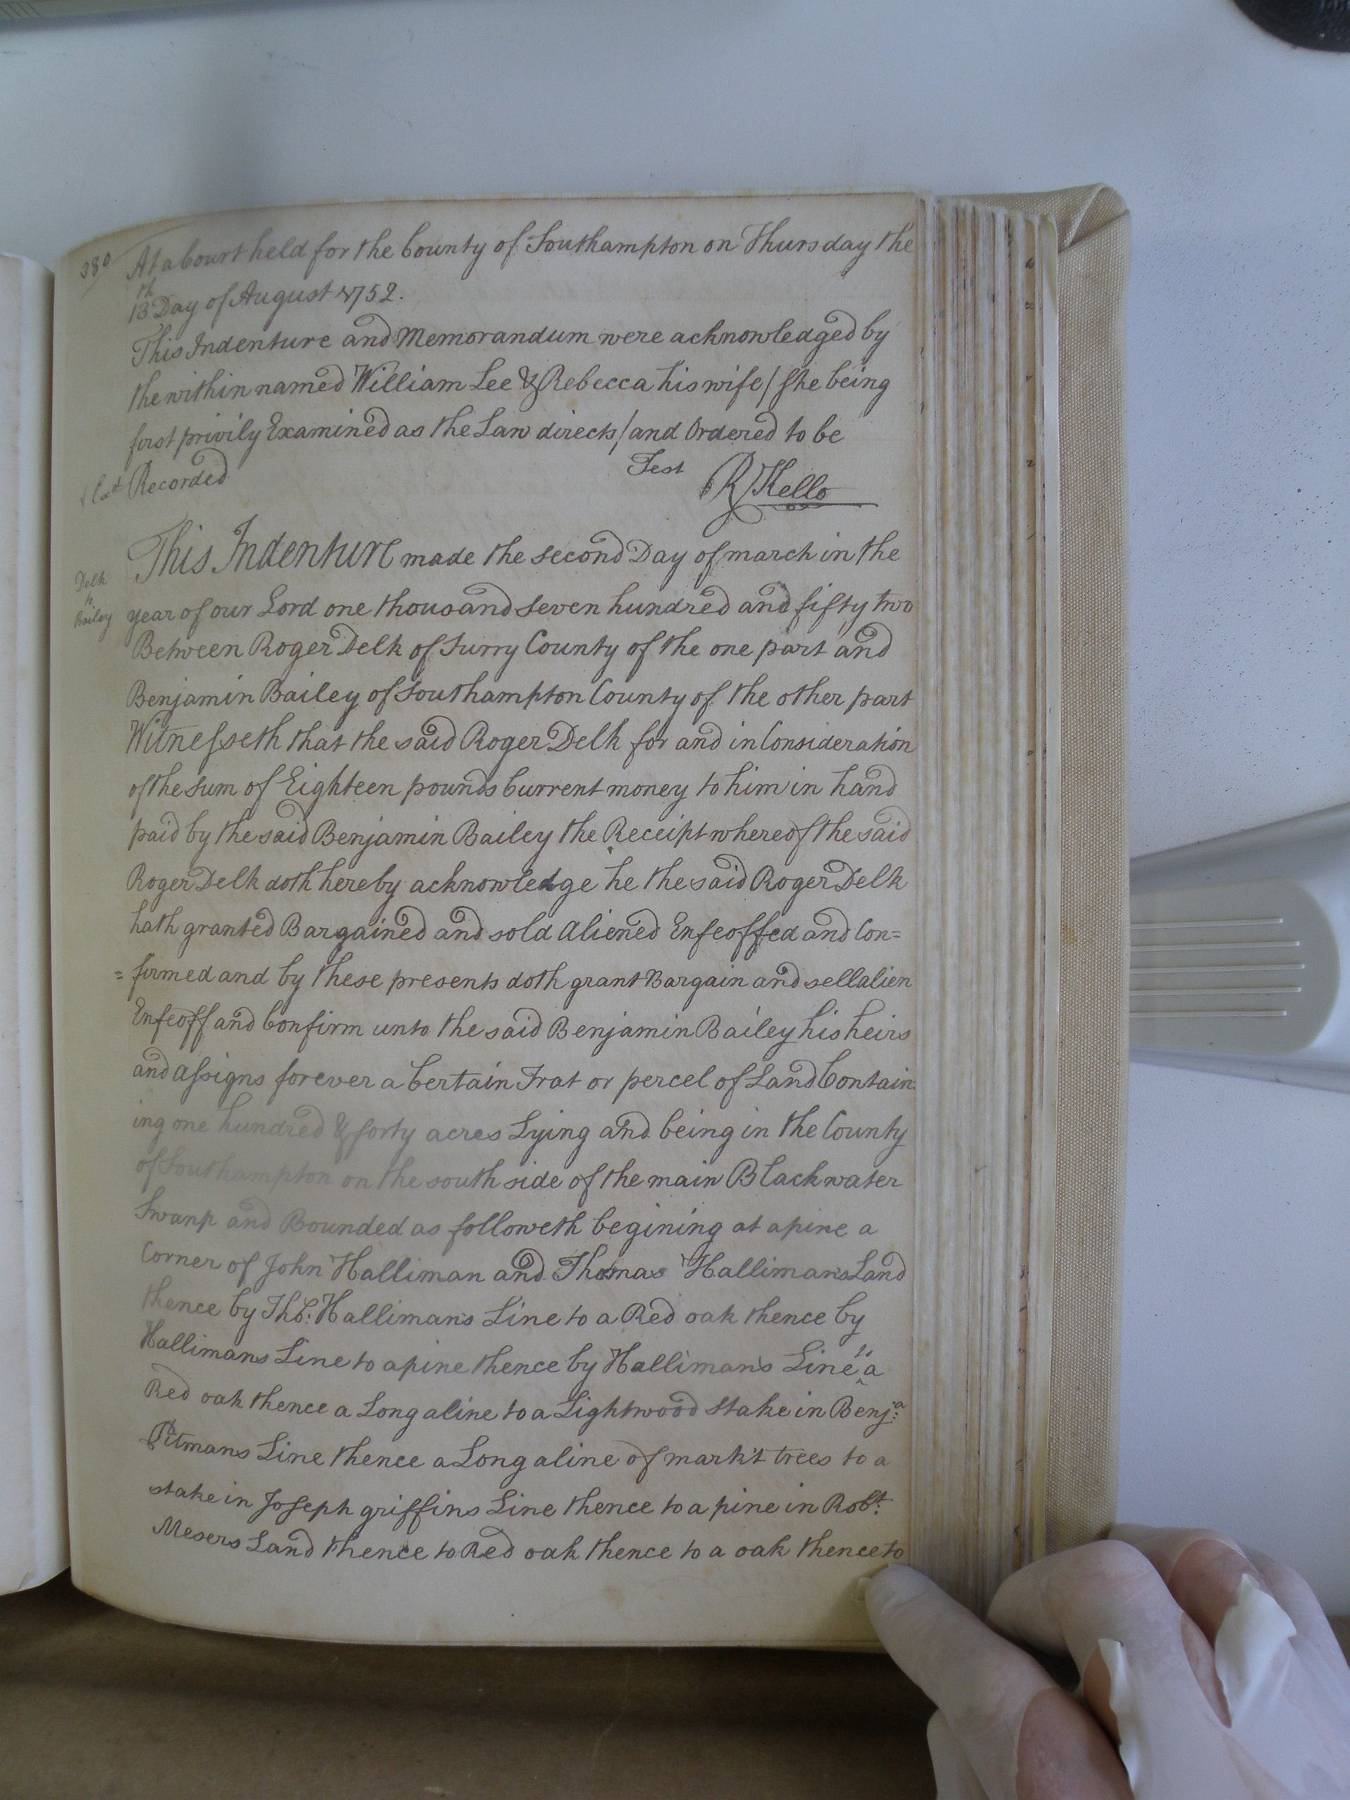 380
At a Court held for the County of Southampton on Thursday the
13th Day of August 1752.
This Indenture and Memorandum were acknowledged by
the within named William Lee & Rebecca his wife / she being
first privily Examined as the Law directs / and Ordered to be
Recorded
Test R Kello
Delk
to
Bailey
This Indenture made the second Day of march in the
year of our Lord one thousand seven hundred and fifty two
Between Roger Delk of Surry County of the one part and
Benjamin Bailey of Southampton County of the other part
Witnesseth that the said Roger Delk for and in Consideration
of the sum of Eighteen pounds Current money to him in hand
paid by the said Benjamin Bailey the Receipt whereof the said
Roger Delk doth hereby acknowledge he the said Roger Delk
hath granted Bargained and sold Aliened Enfeoffed and Con=
=firmed and by these presents doth grant Bargain and sell alien
Enfeoff and Confirm unto the said Benjamin Bailey his heirs
and assigns forever a Certain Trat or percel of Land Contain
ing one hundred & forty acres Lying and being in the County
of Southampton on the south side of the main Blackwater
Swanp and Bounded as followeth begining at a pine a
Corner of John Halliman and Thomas Hallimans Land
thence by Tho.s Hallimans Line to a Red oak thence by
Hallimans Line to a pine thence by Hallimans Line to a
Red oak thence a Long a line to a Lightwood stake in Benja:
Pitmans Line thence a Long a line of mark't trees to a
stake in Joseph griffins Line thence to a pine in Robt.
Mesers Land thence to Red oak thence to a oak thence to